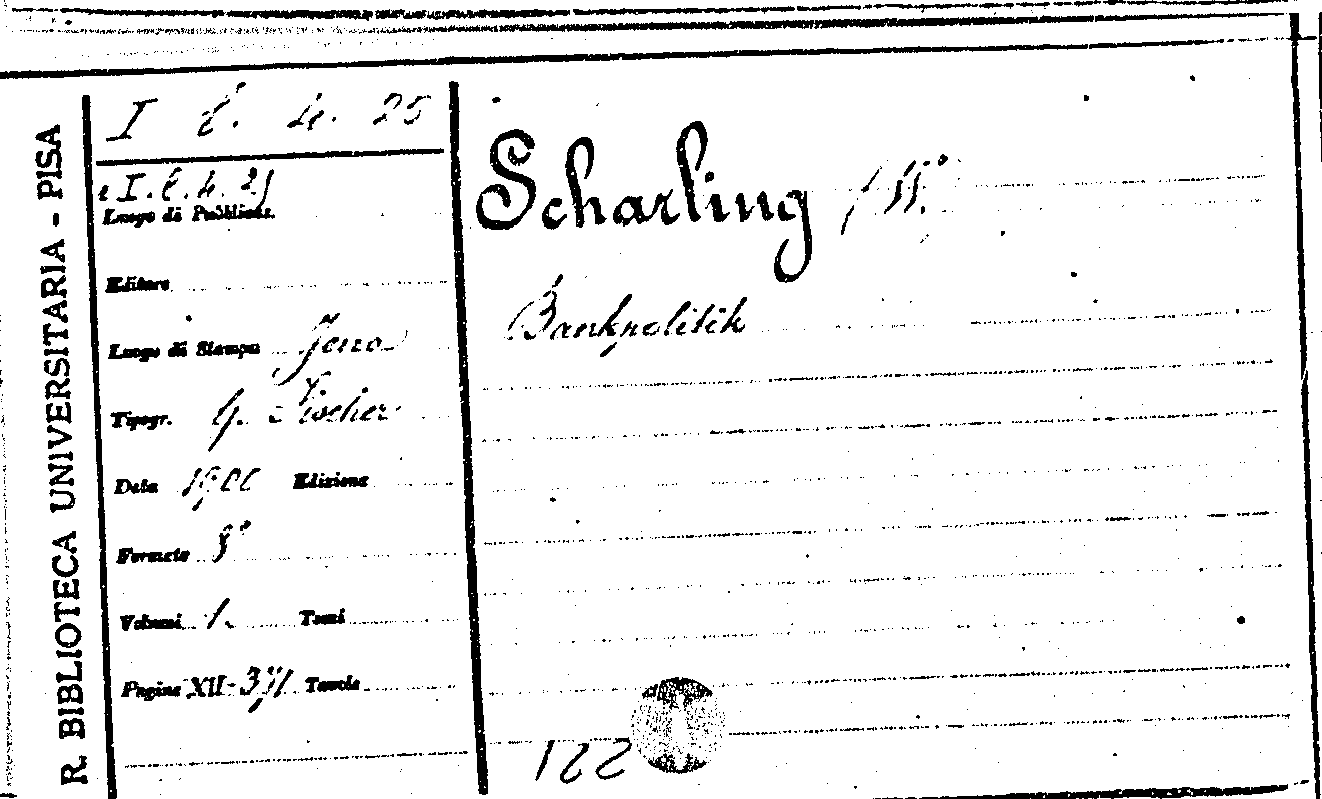 R. BIBLIOTECA UNIVERSITARIA - PISA
I l. 4. 25
I. l. 4. 25
Luogo di Pubblicaz.
Editore
Luogo di Stampa Jena
Tipogr. G. Fischer
Data 1900 Edizione
Formato 8°
Volumi 1. Tomi
Pagine XII- Tavole
Scharling
Bankpolitik
122